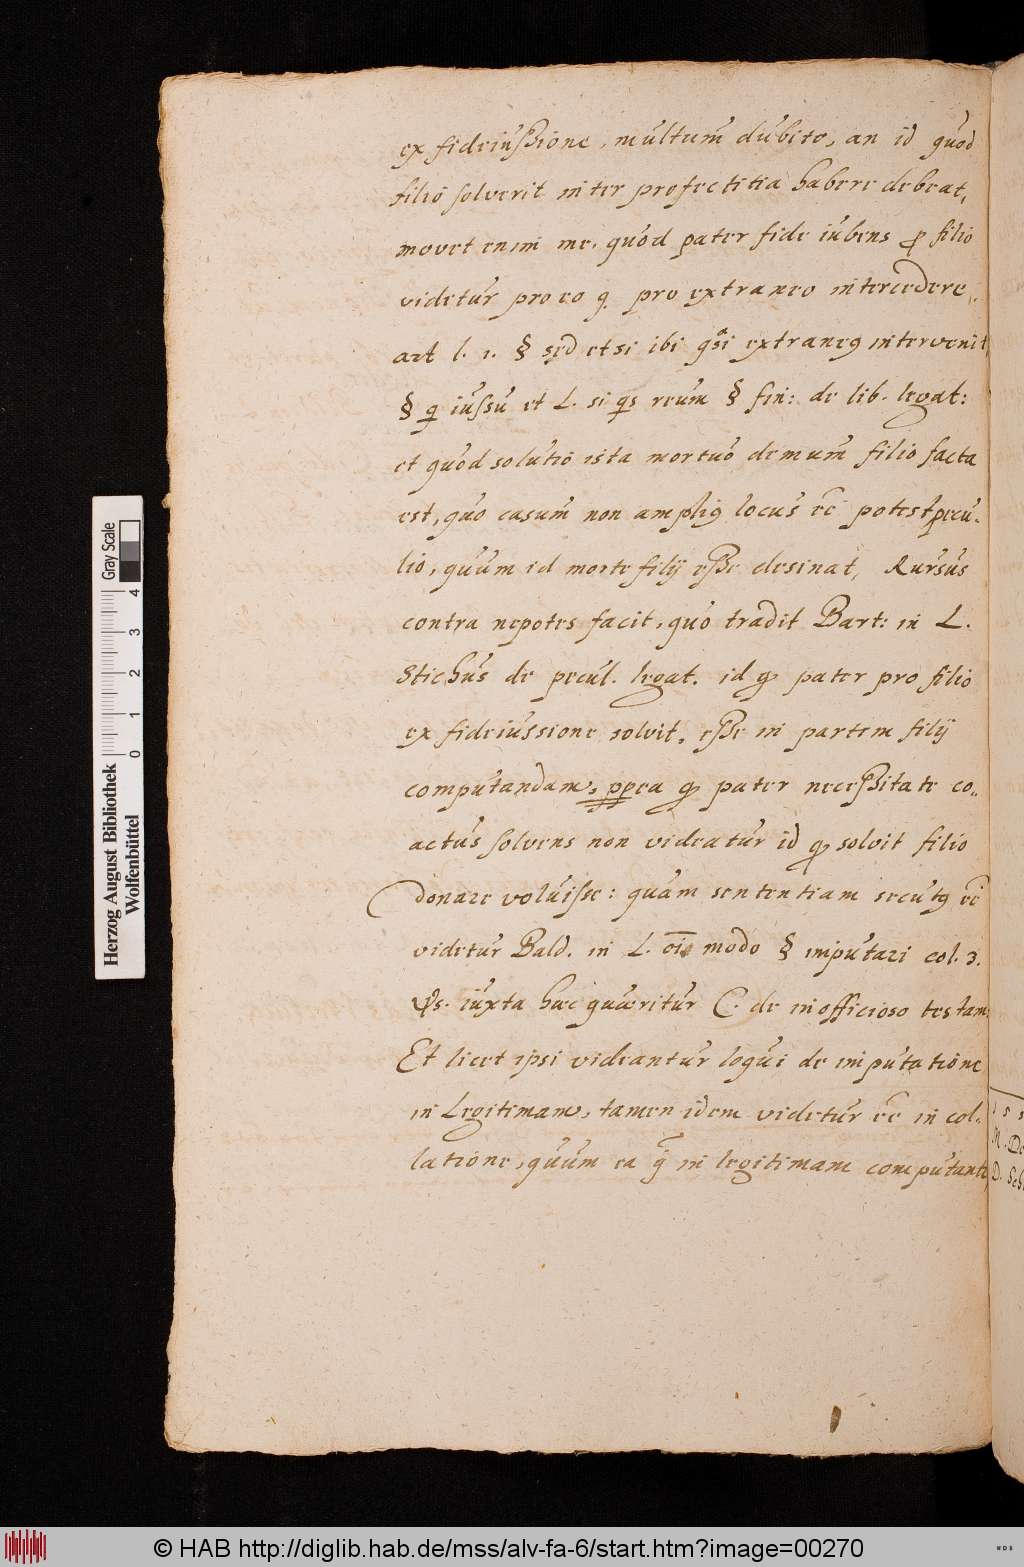 ex fideiussione, multum dubito, an id quod
filio solverit inter profectitia habere debeat,
movet enim me, quod pater fide iubens ꝓ filio
videtur pro eo q. pro extraneo intercedere,
l. 1. § sed et si ibi extraneꝰ intervenit
§ q iussu et L. si qs reum § fin: de lib. legat:
et quod solutio ista mortuo demum filio facta
est, quo casum non ampliꝰ locus eē potest pecu-
lio, quum id morte filij esse desinat, Rursus
contra nepotes facit, quo tradit Bart: in L.
Stichus de pecul. legat. id qd pater pro filio
ex fideiussione solvit, esse in partem filij
computandam, ꝓpea qd pater necessitate co-
actus solvens non videatur id qd solvit filio
donare voluisse: quam sententiam secutꝰ eē
videtur Bald. in L. oī modo § imputari col. 3.
Vs. iuxta hæc quæritur C. de inofficioso testam
Et licet ipsi videantur loqui de imputatione
in Legitimam, tamen idem videtur eē in col-
latione, quum ea q̄ in legitimam computant
Herzog August Bibliothek
Wolfenbüttel
Gray Scale
0 1 2 3 4
© HAB http://diglib.hab.de/mss/alv-fa-6/start.htm?image=00270